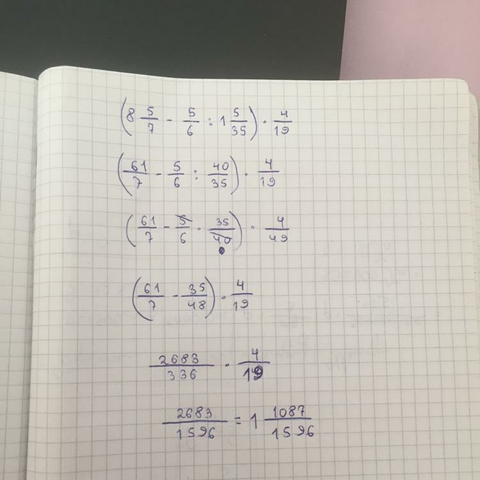 (8 5/7 - 5/6 : 1 5/35) · 4/19
(61/7 - 5/6 : 40/35) · 4/19
(61/7 - 5/6 · 35/40) · 4/49
(61/7 - 35/48) · 4/19
2683/336 · 4/19
2683/1596 = 1 1087/1596